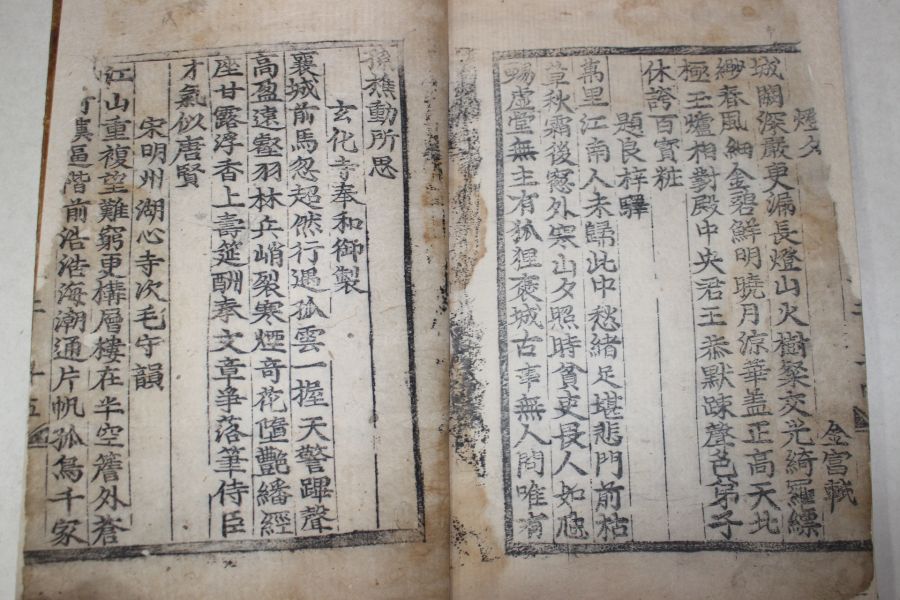 燈夕 金富軾
城闕深嚴更漏長燈山火樹粲交光綺羅縹
緲春風細金碧鮮明曉月涼華盖正高天北
極玉爐相對殿中央君王恭默踈聲色弟子
休誇百寶粧
題良梓驛
萬里江南人未歸此中愁緖足堪悲門前枯
草秋霜後窓外寒山夕照時貧吏畏人如虺
蜴虛堂無主有狐狸褒城古事無人問唯有
孫樵動所思
玄化寺奉和御製
襄城前馬忽超然行遇孤雲一握天警蹕聲
高盈遠壑羽林兵峭裂寒煙奇花隨艷繙經
座甘露浮香上壽筵酬奉文章爭落筆侍臣
才氣似唐賢
宋明州湖心寺次毛守韻
江山重複望難窮更構層樓在半空簷外蒼
逼階前浩浩海潮通片帆孤鳥千家